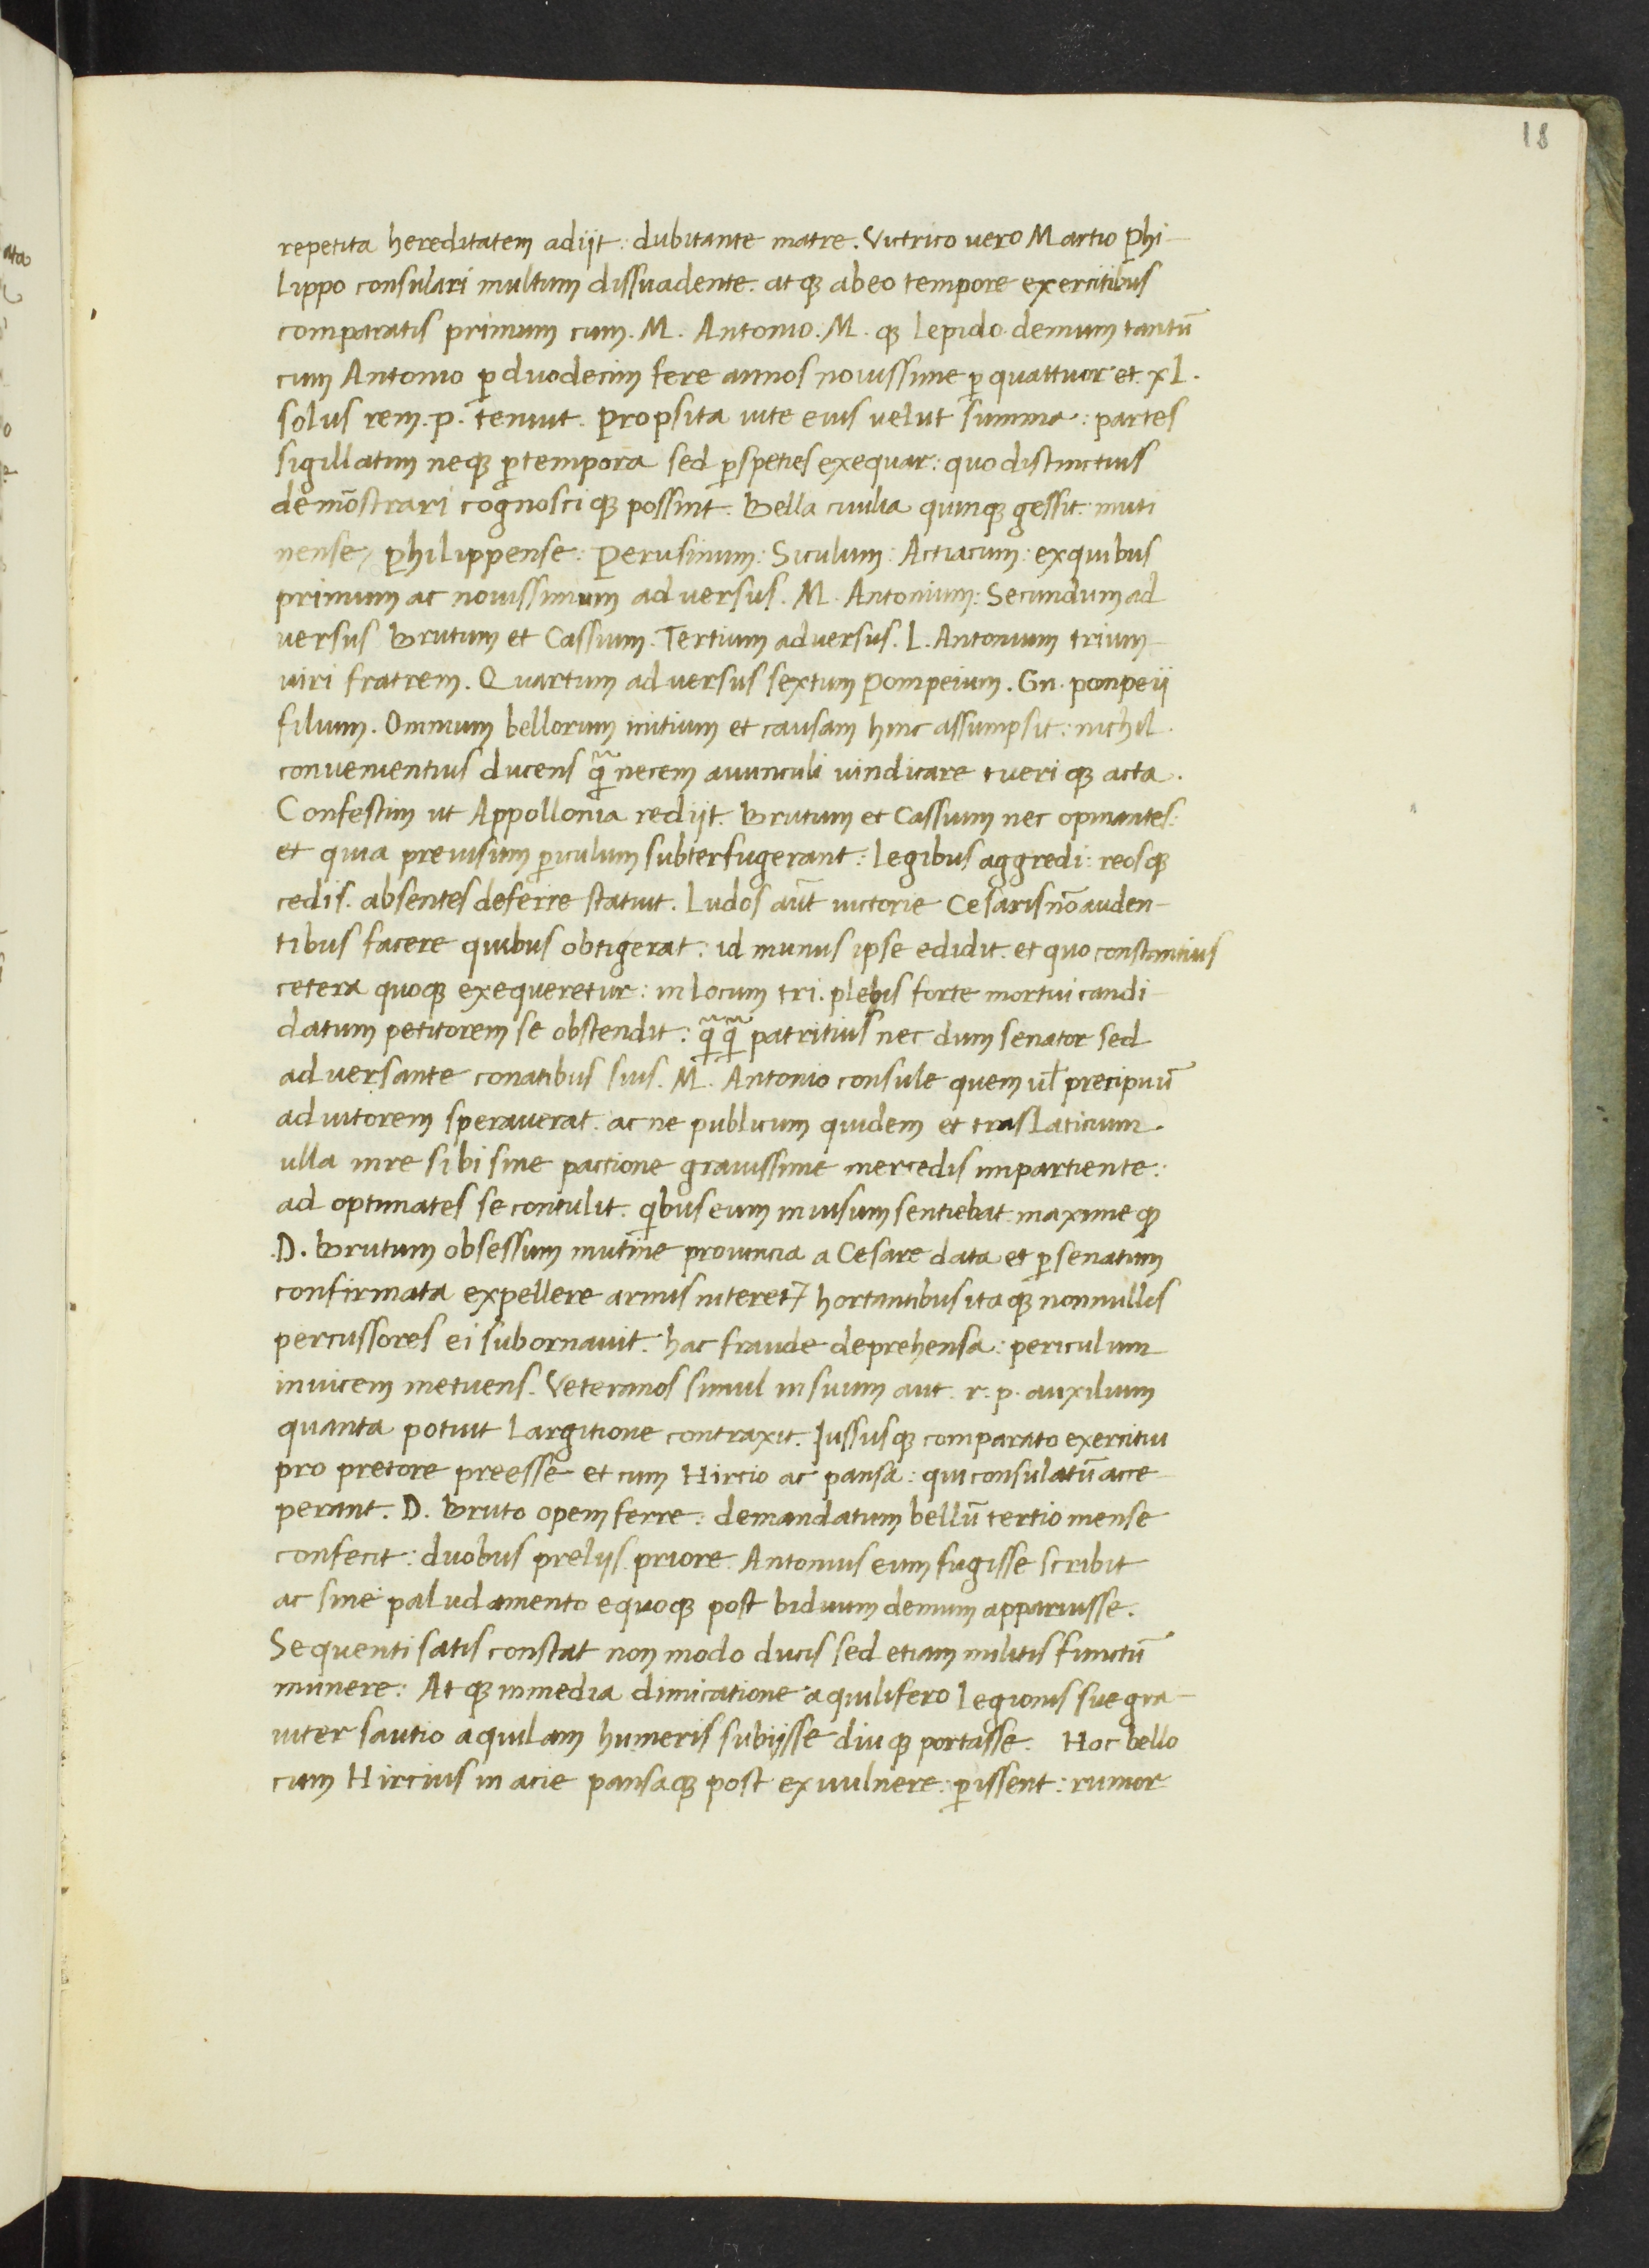 18
repetita hereditatem adijt: dubitante matre. Victrico vero Martio Phi-
lippo consulari multum dissuadente. atqꝫ abeo tempore exercitibus
comparatis primum cum. M. Antonio. M. qꝫ lepido demum tantū
cum Antonio ꝑ duodecim fere annos novissime ꝑ quattuor et. xl.
solus rem. p. tenuit. propsita uite eius uelut summa: partes
sigillatim neqꝫ ꝑtempora sed ꝑ speties exequar: quo distinctius
demōstrari cognosci qꝫ possint. Bella ciuilia quinqꝫ gessit. muti
nense, philippense: Perusinum: Siculum: Actiacum: exquibus
primum ac nouissimum adversus. M. Antonium: Secundum ad
versus Brutum et Cassium. Tertium adversus. L. Antonium trium-
uiri fratrem. Quartum adversus sextum Pompeium. Gn. ponpeij
filium. Omnium bellorum initium et causam hinc assumpsit: nichil
convenientius ducens q̃ necem avunculi vindicare tueri qꝫ acta.
Confestim ut Appollonia redijt. Brutum et Cassium nec opinantes:
et quia previsum ꝑiculum subterfugerant: legibus aggredi: reosqꝫ
cedis. absentes deferre statuit. Ludos aūt victorie Cesaris nō auden-
tibus facere quibus obtigerat: id munus ipse edidit. et quo constantius
cetera quoqꝫ exequeretur: in locum tri. plebis forte mortui candi-
datum petitorem se obstendit: q̃ q̃ patritius nec dum senator sed
adversante conatibus suis. M. Antonio consule quem ul̄ precipuū
adiutorem speraverat. ac ne publicum quidem et traslaticium.
ulla inre sibi sine pactione gravissime mercedis impartiente:
ad optimates se contulit. qibus eum invisum sentiebat. maxime qꝫ
D. Brutum obsessum mutine provincia a Cesare data et ꝑ senatum
confirmata expellere armis niteret̃ hortantibus itaqꝫ nonnullis
percussores ei subornavit. hac fraude deprehensa: periculum
invicem metuens. Veteranos simul in suum aut. r. p. auxilium
quanta potuit largitione contraxit. Iussusqꝫ comparato exercitui
pro pretore preesse et cum Hircio ac pansa: qui consulatū acce
perant. D. Bruto opem ferre: demandatum bellū tertio mense
confecit: duobus prelijs. priore Antonius eum fugisse scribit
ac sine paludamento equoqꝫ post biduum demum apparuisse.
Sequenti satis constat non modo ducis sed etiam militis functū
munere: Atqꝫ inmedia dimicatione aquilifero legionis sue gra-
uiter sautio aquilam humeris subijsse diuqꝫ portasse. Hoc bello
cum Hircius in acie pansaqꝫ post exvulnere ꝑissent: rumor